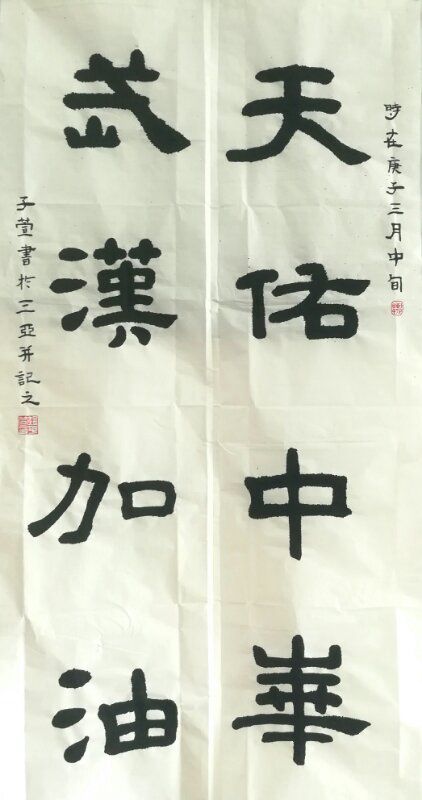 時在庚子三月中旬
天佑中華
武漢加油
子萱書於三亞并記之